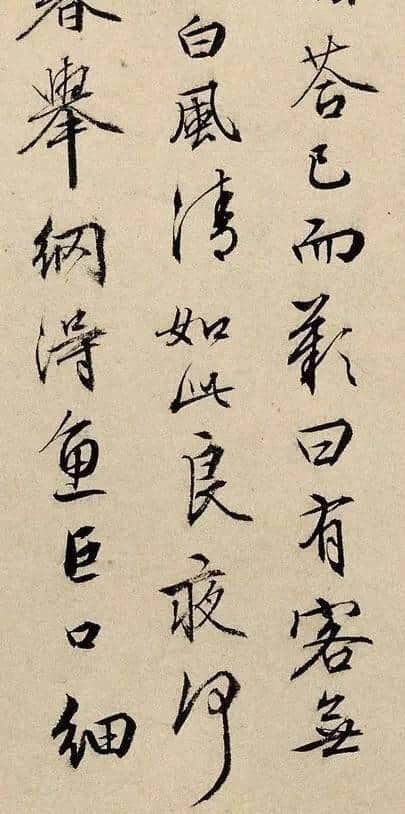 答已而歎曰有客無
白風清如此良夜何
舉網得魚巨口細